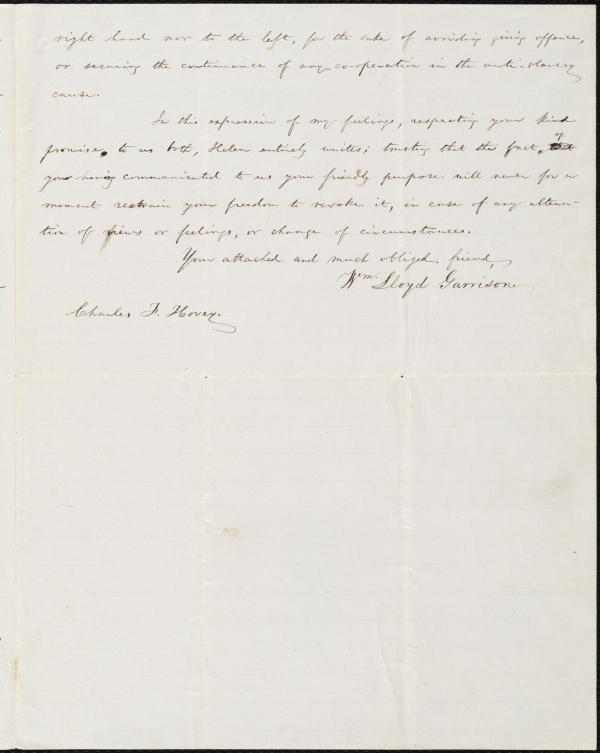 right hand nor to the left, for the sake of avoiding giving offence,
or securing the continuance of any co-operation in the anti-slavery
cause.
In this expression of my feelings, respecting your kind
promise to us both, Helen entirely unites; trusting that the fact of
your having communicated to us your friendly purpose will never for a
moment restrain your freedom to revoke it, in case of any altera-
tion of views or feelings, or change of circumstances.
Your attached and much obliged friend,
Wm. Lloyd Garrison.
Charles F. Hovey.